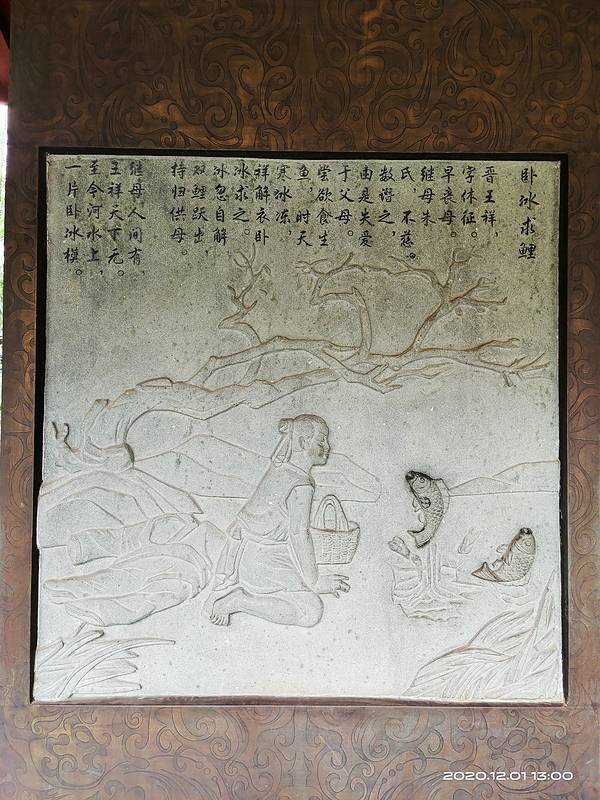 卧冰求鲤
晋王祥，
字休征。
早丧母。
继母朱
氏，不慈。
数谮之，
由是失爱
于父母。
尝欲食生
鱼，时天
寒冰冻，
祥解衣卧
冰求之。
冰忽自解
双鲤跃出，
持归供母。
继母人间有，
王祥天下无。
至今河水上，
一片卧冰模。
2020.12.01 13:00